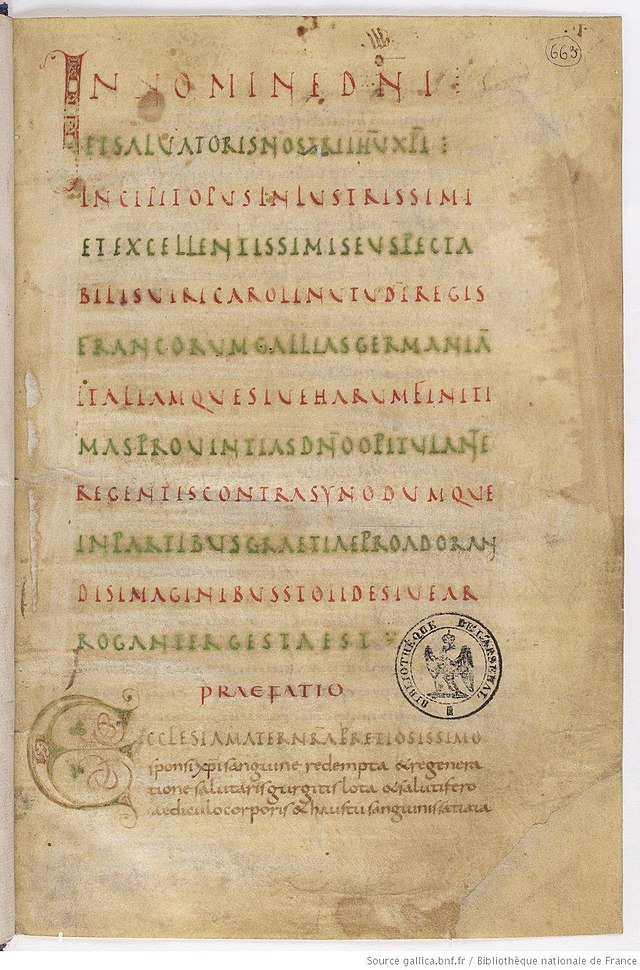 663
IN NOMINE DN̄I
ET SALVATORIS NOSTRI IHŪ XP̄I
INCIPIT OPUS INLUSTRISSIMI
ET EXCELLENTISSIMI SEU SPECTA
BILIS VIRI CAROLI NUTU DEI REGIS
FRANCORUM GALLIAS GERMANIĀ
ITALIAMQUE SIVE HARUM FINITI
MAS PROVINTIAS DN̄O OPITULANTE
REGENTIS CONTRA SYNODUM QUE
IN PARTIBUS GRAETIAE PRO ADORAN
DIS IMAGINIBUS STOLIDE SIVE AR
ROGANTER GESTA EST
BIBLIOTHÈQUE DE L'ARSENAL
PRAEFATIO
ECCLESIA MATER NR̄A PRETIOSISSIMO
sponsi xp̄i sanguine redempta & regenera
tione salutaris gurgitis lota & salutifero
aedi culo corporis & haustu sanguinis satiata
Source gallica.bnf.fr / Bibliothèque nationale de France